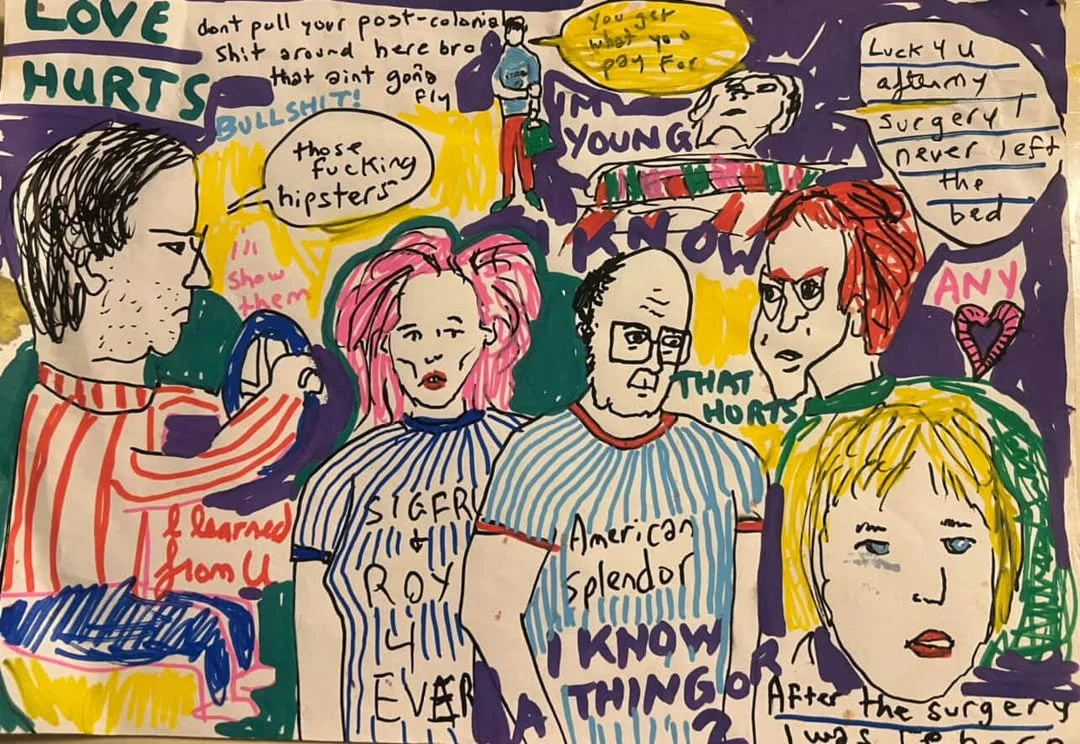 LOVE
HURTS
dont pull your post-colonial
shit around here bro
that aint gona
fly
BULLSHIT!
those
fucking
hipsters
i'll
show
them
You get
what you
pay for
I'M
YOUNG
I KNOW
Luck 4 U
after my
surgery I
never left
the
bed
ANY
THAT
HURTS
I learned
from U
SIGFRI
+
ROY
4
EVER
American
Splendor
I KNOW
A THING OR
2
After the surgery
I was